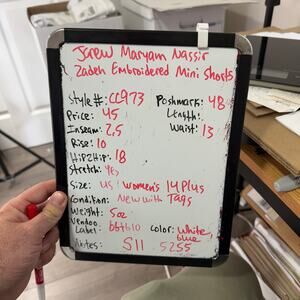 Jcrew Maryam Nassir
Zadeh Embroidered Mini Shorts
Style#: CC973 Poshmark: 4B
Price: 45 Length:
Inseam: 2.5 Waist: 13
Rise: 10
Hip2Hip: 18
Stretch: Yes
Size: US Women's 14 Plus
Condition: New with Tags
Weight: 5oz
Vendoo
Label: bbtb10 Color: White, blue
Notes: S11 5255